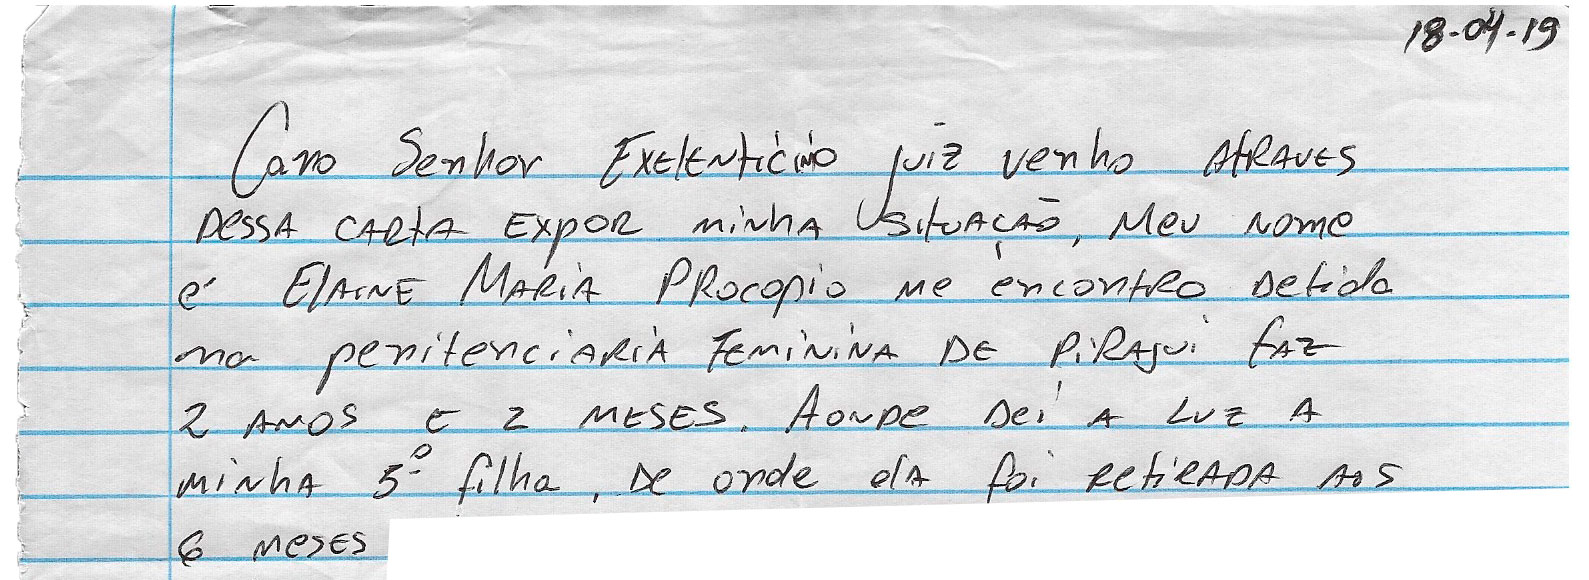 18-04-19
Caro Senhor Exelenticimo juiz venho ATRAVES
DESSA CARTA EXPOR minhA SitUAÇÃO, Meu nome
é ElAiNE MARiA PRocopio me encontro Detida
na penitenciARiA FEMiNiNA DE PiRAjui fAZ
2 ANOS E 2 MESES. AonDe Dei A LUZ A
minhA 5º filha, De onde elA foi RetiRADA AoS
6 meses